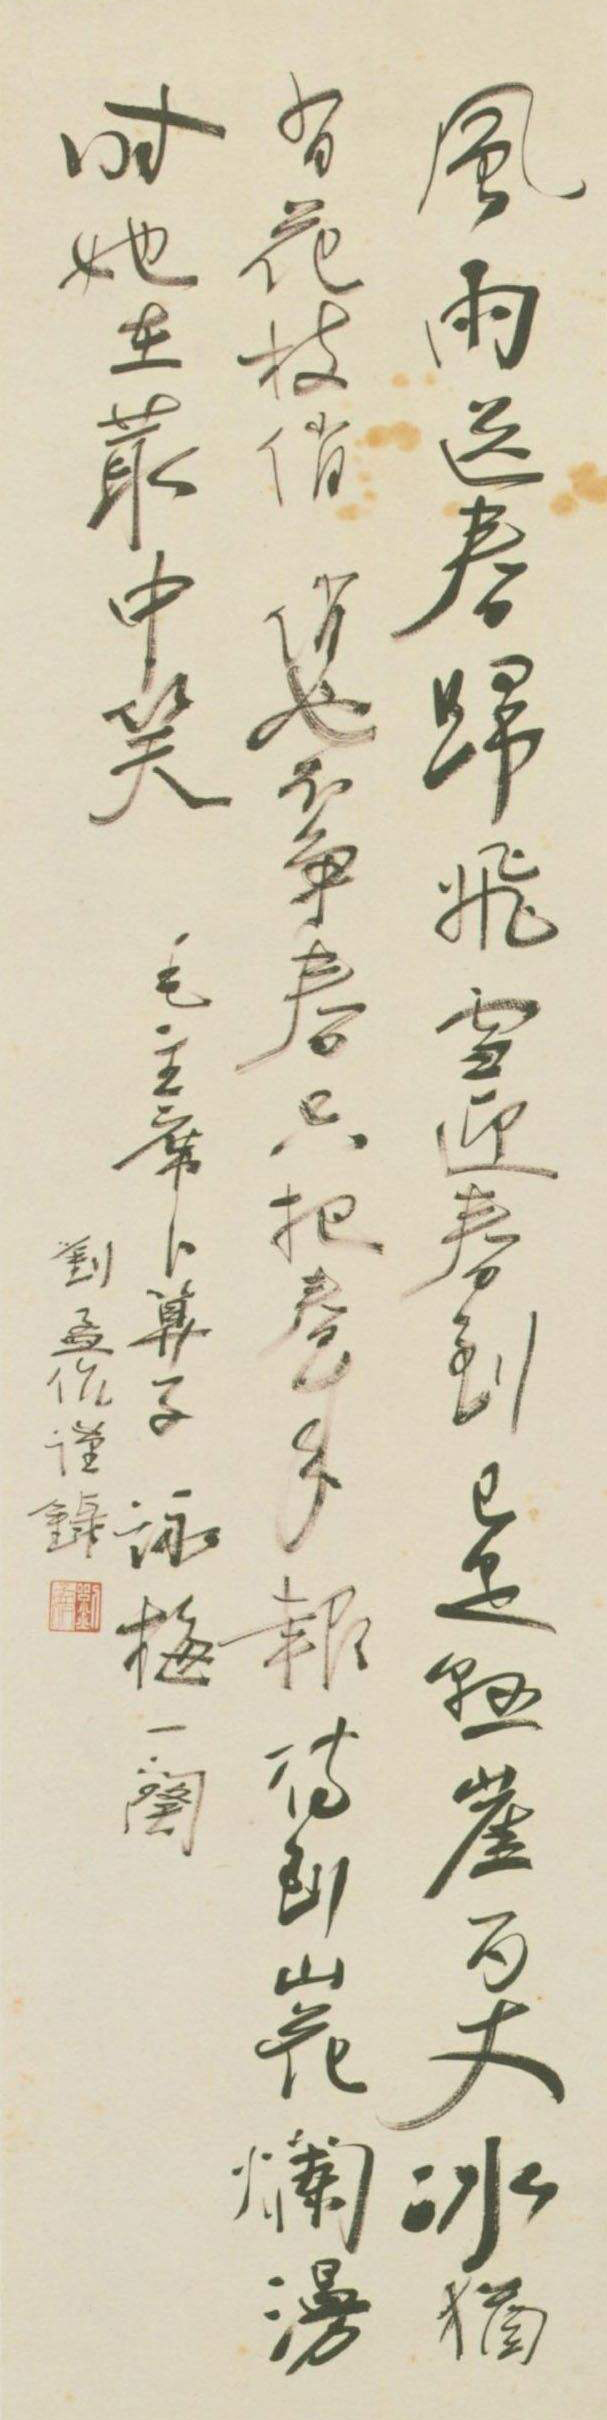 風雨送春歸飛雪迎春到已是懸崖百丈冰猶
有花枝俏 俏也不爭春只把春來報待到山花爛漫
时她在叢中笑
毛主席卜算子 詠梅一闋
劉孟伉謹錄